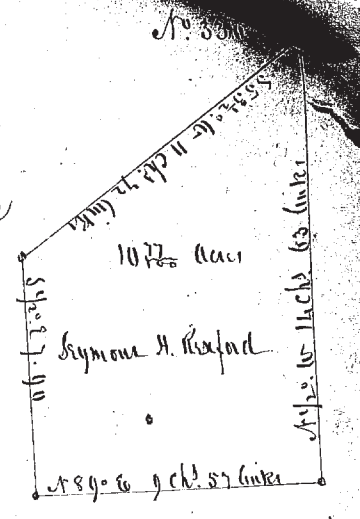 No. 33
S 53½° W 11 chs. 72 links
10 77/100 Acres
S ½° E 7.90
Seymour H. Rexford
N ½° W 14 chs. 63 links
N 89° E 9 chs. 57 links